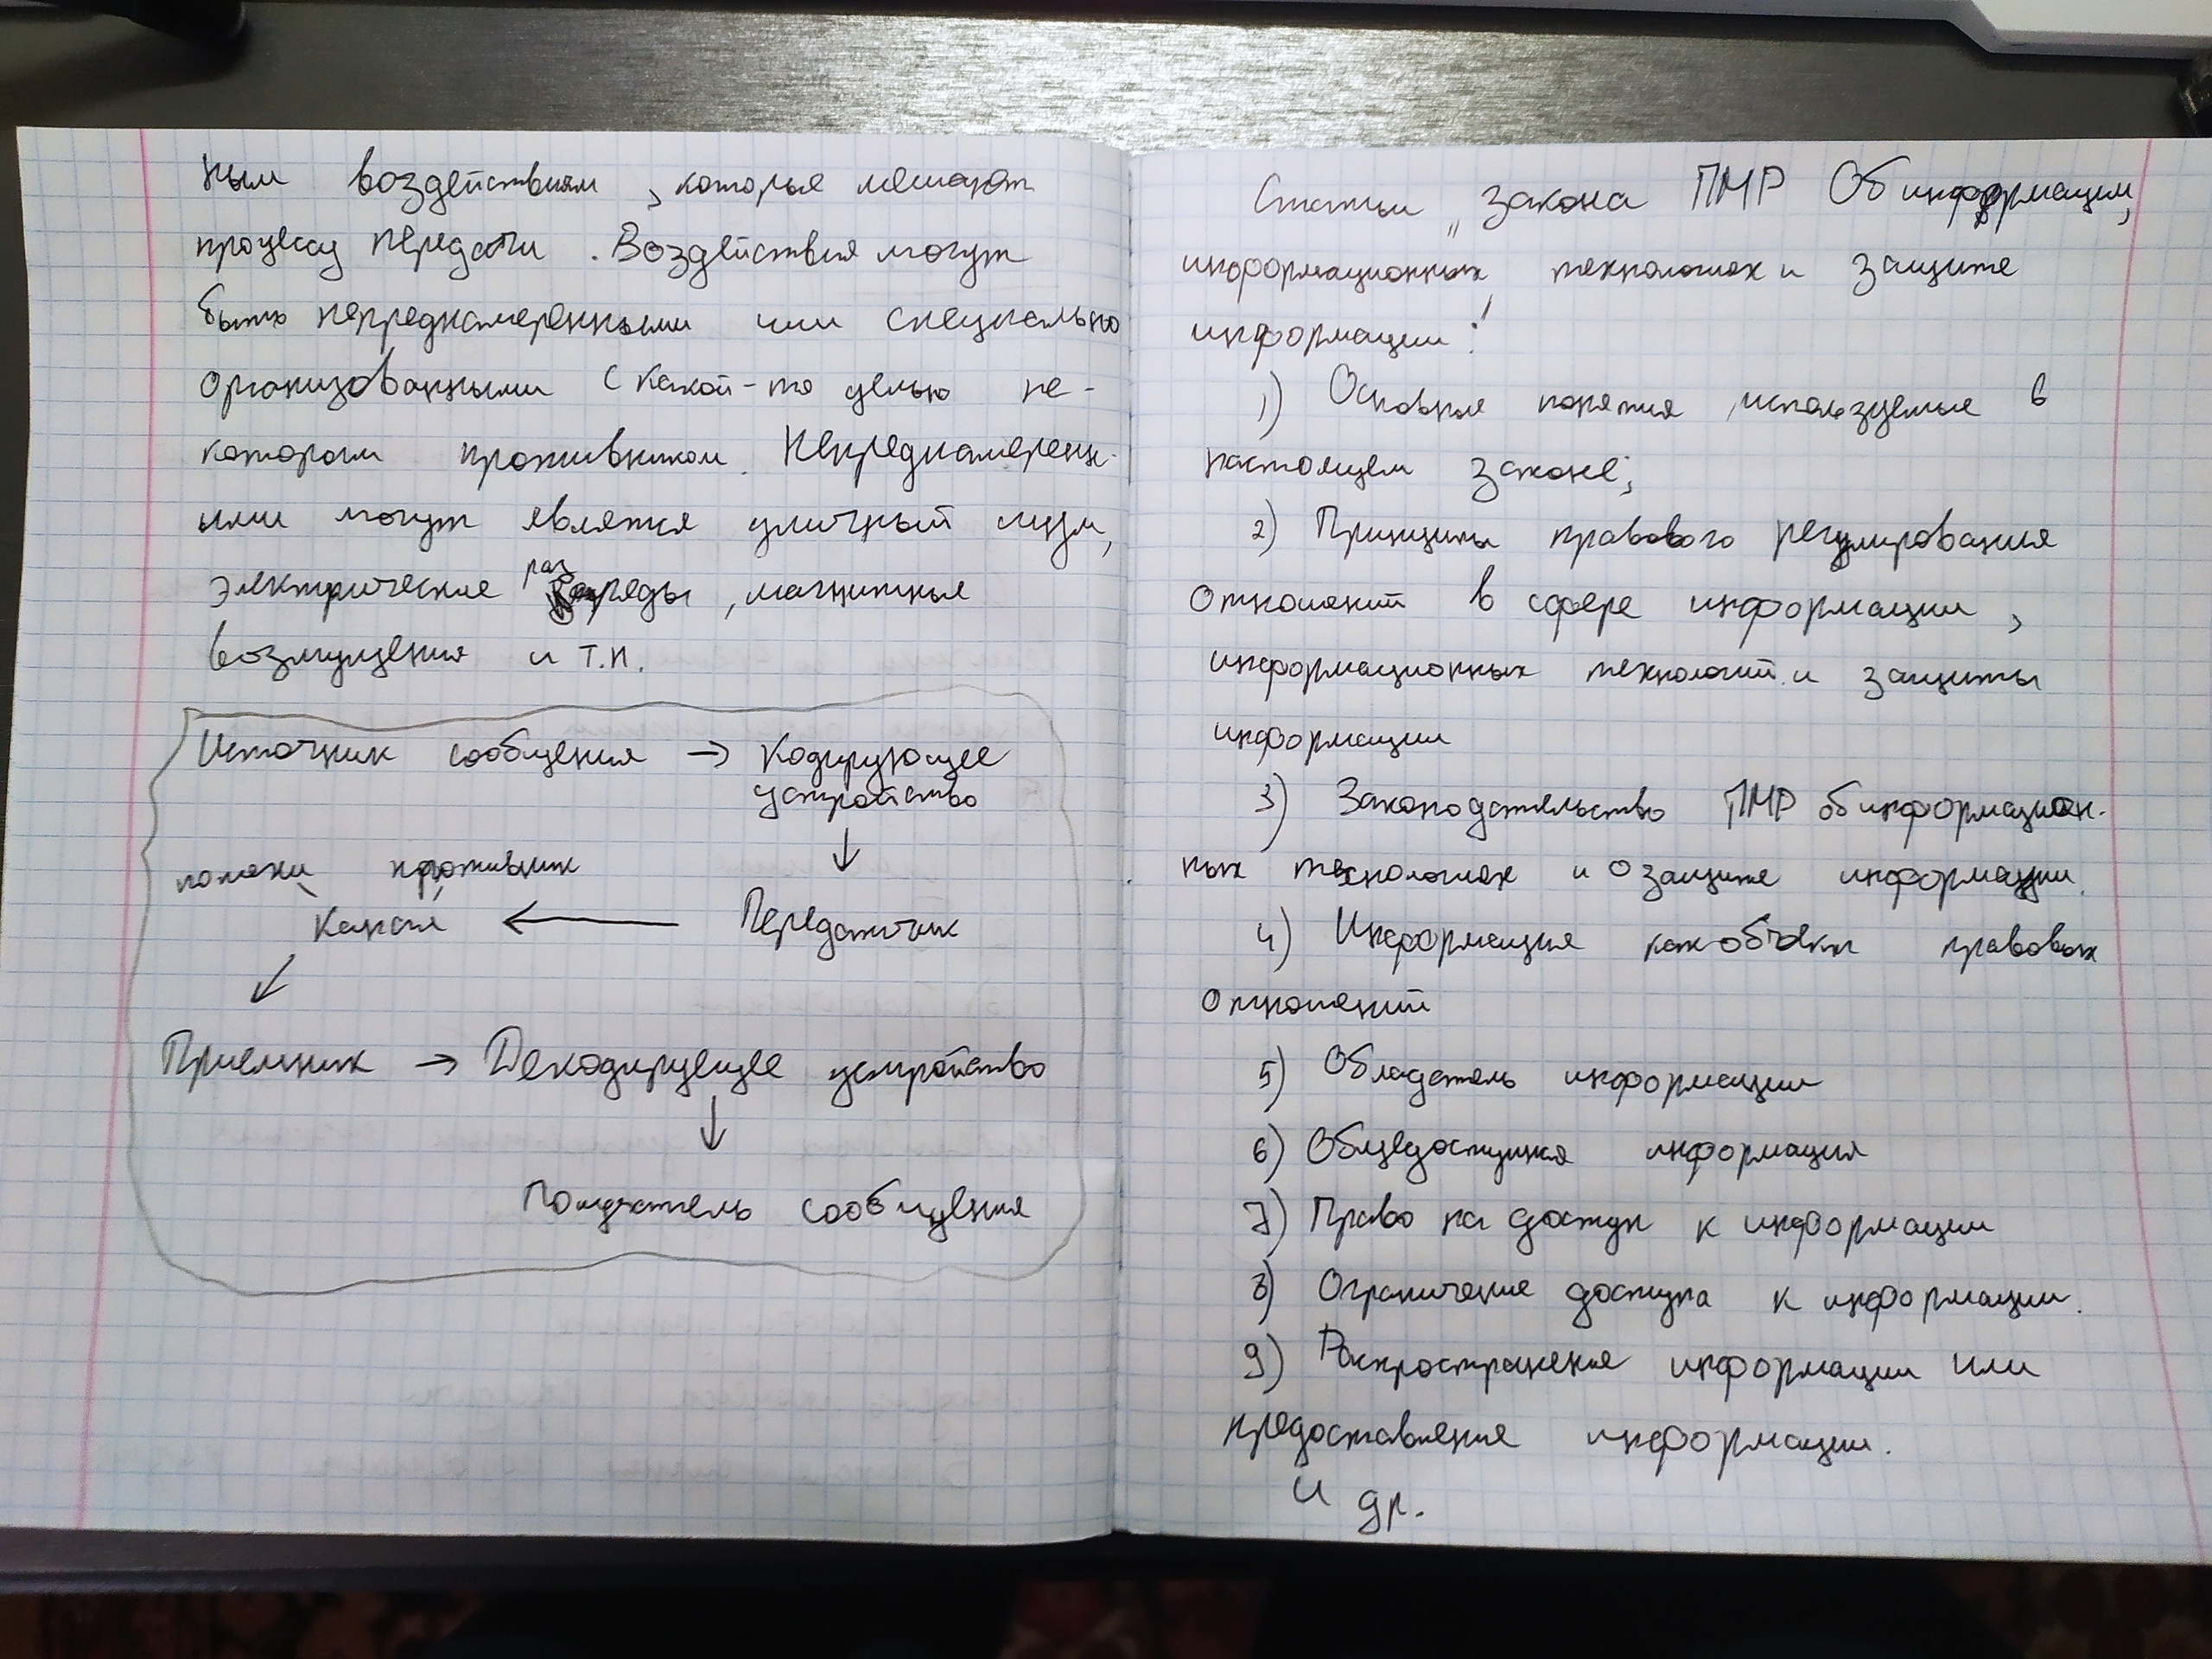 ным воздействиям, которые мешают
процессу передачи. Воздействия могут
быть непреднамеренными или специально
организованными с какой-то целью не-
которым противником. Непреднамерен-
ыми могут являтся уличный шум,
электрические разряды, магнитные
возмущения и т.п.
Источник сообщения → Кодирующее
устройство
↓
помехи противник
Канал ← Передатчик
↓
Приемник → Декодирующее устройство
↓
Получатель сообщения
Статьи „Закона ПМР Об информации,
информационных технологиях и защите
информации":
1) Основные понятия, используемые в
настоящем законе;
2) Принципы правового регулирования
отношений в сфере информации,
информационных технологий и защиты
информации
3) Законодательство ПМР об информацион-
ных технологиях и о защите информации.
4) Информация как объект правовых
отношений
5) Обладатель информации
6) Общедоступная информация
7) Право на доступ к информации
8) Ограничение доступа к информации.
9) Распространение информации или
предоставление информации.
и др.